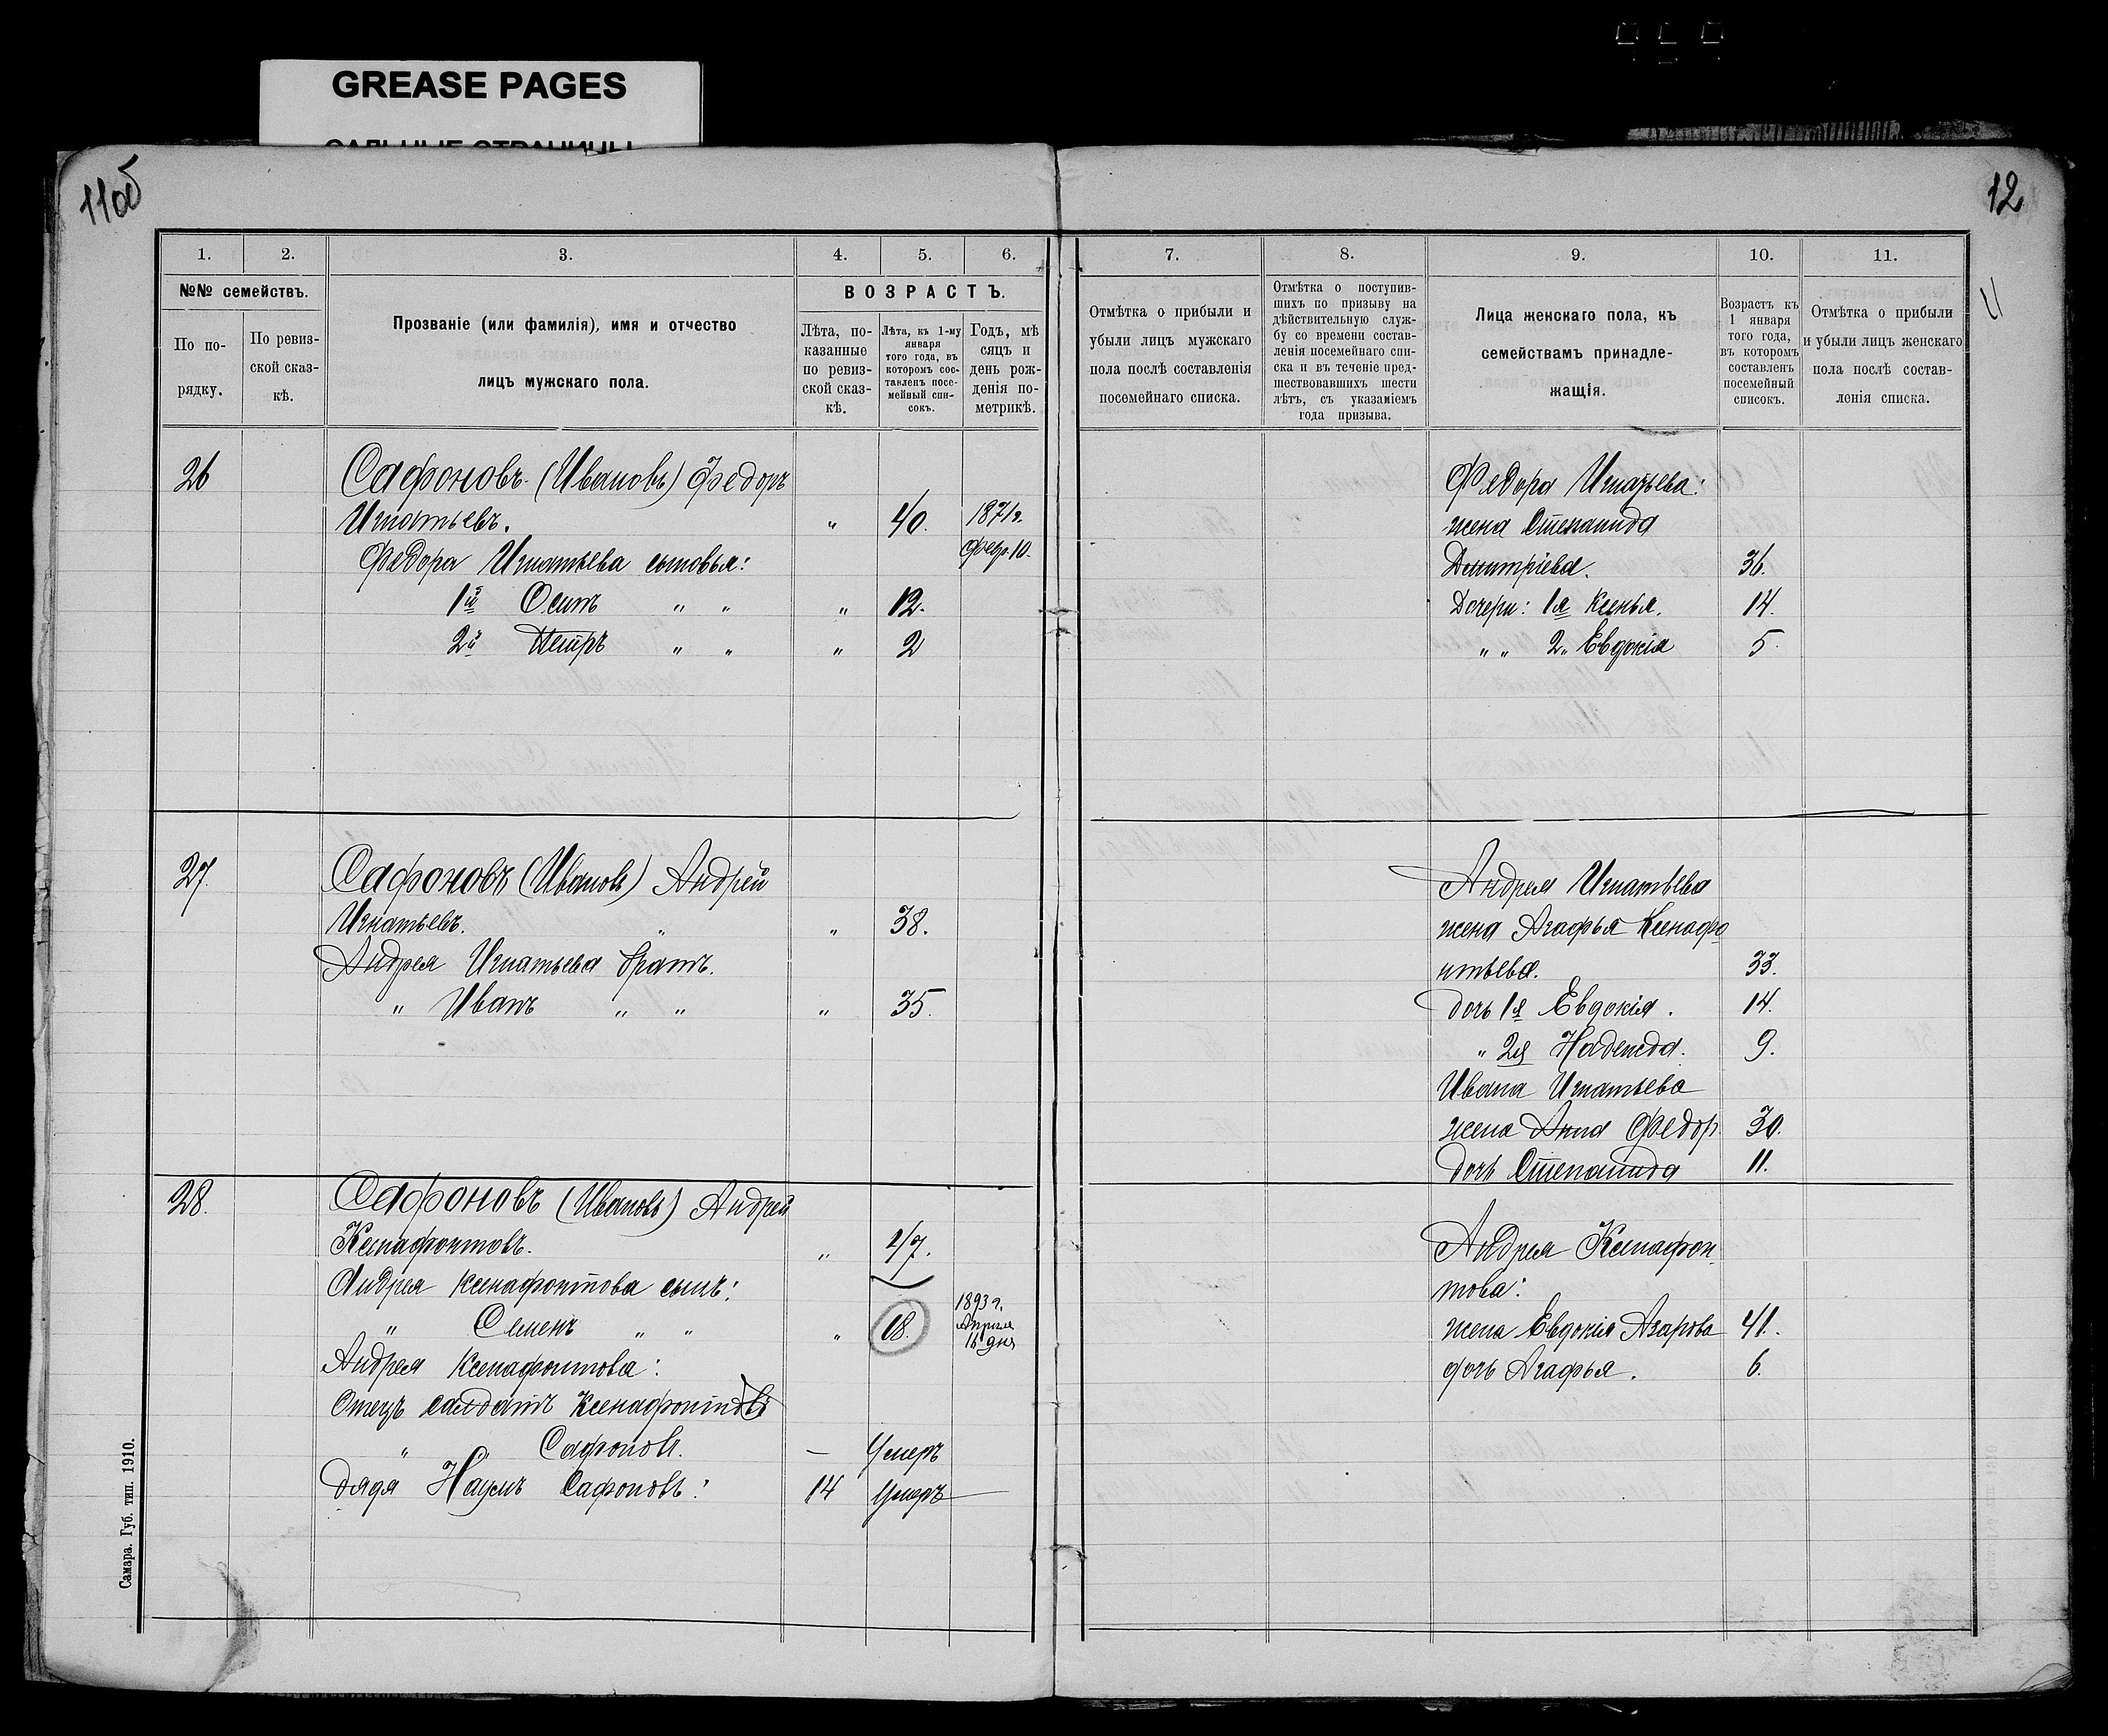 GREASE PAGES
САЛЬНЫЕ СТРАНИЦЫ
11об
12
11
1. 2. 3. 4. 5. 6.
№№ семействъ.
По по-
рядку.
По ревиз-
ской сказ-
кѣ.
Прозваніе (или фамилія), имя и отчество
лицъ мужскаго пола.
ВОЗРАСТЪ.
Лѣта, по-
казанные
по ревиз-
ской сказ-
кѣ.
Лѣта, къ 1-му
января
того года, въ
которомъ сос-
тавленъ посе-
мейный спи-
сокъ.
Годъ, мѣ
сяцъ и
день рож-
денія по-
метрикѣ.
26 Сафоновъ (Ивановъ) Федоръ
Игнатьевъ. " 40. 1871г.
Февр. 10.
Федора Игнатьева сыновья:
1й Осипъ " " " 12.
2й Петръ " " " 2
27. Сафоновъ (Ивановъ) Андрей
Игнатьевъ. " " 38.
Андрея Игнатьева братъ.
" Иванъ " " " 35.
28. Сафоновъ (Ивановъ) Андрей
Ксенафонтовъ. " 47.
Андрея Ксенафонтова сынъ:
" Семенъ " " " 18. 1893 г.
Апреля
16 дня
Андрея Ксенафонтова:
Отецъ салдатъ Ксенафонтовъ
" Сафоновъ. — Умеръ
Дядя Наумъ Сафоновъ: 14 Умеръ
Самара. Губ. тип. 1910.
7. 8. 9. 10. 11.
Отмѣтка о прибыли и
убыли лицъ мужскаго
пола послѣ составленія
посемейнаго списка.
Отмѣтка о поступив-
шихъ по призыву на
дѣйствительную служ-
бу со времени состав-
ленія посемейнаго спи-
ска и въ теченіе пред-
шествовавшихъ шести
лѣтъ, съ указаніемъ
года призыва.
Лица женскаго пола, къ
семействамъ принадле-
жащія.
Возрастъ къ
1 января
того года,
въ которомъ
составленъ
посемейный
списокъ.
Отмѣтка о прибыли
и убыли лицъ женскаго
пола послѣ состав-
ленія списка.
Федора Игнатьева:
жена Степанида
Дмитріева. 36.
Дочери: 1я Ксенья. 14.
" " 2" Евдокія 5.
Андрея Игнатьева
жена Агафья Ксенафо
нтьева. 33.
дочь 1я Евдокія. 14.
" 2я Надежда. 9.
Ивана Игнатьева
жена Анна Федор 30.
дочь Степанида 11.
Андрея Ксенафон
това:
жена Евдокія Азарова 41.
дочь Агафья. 6.